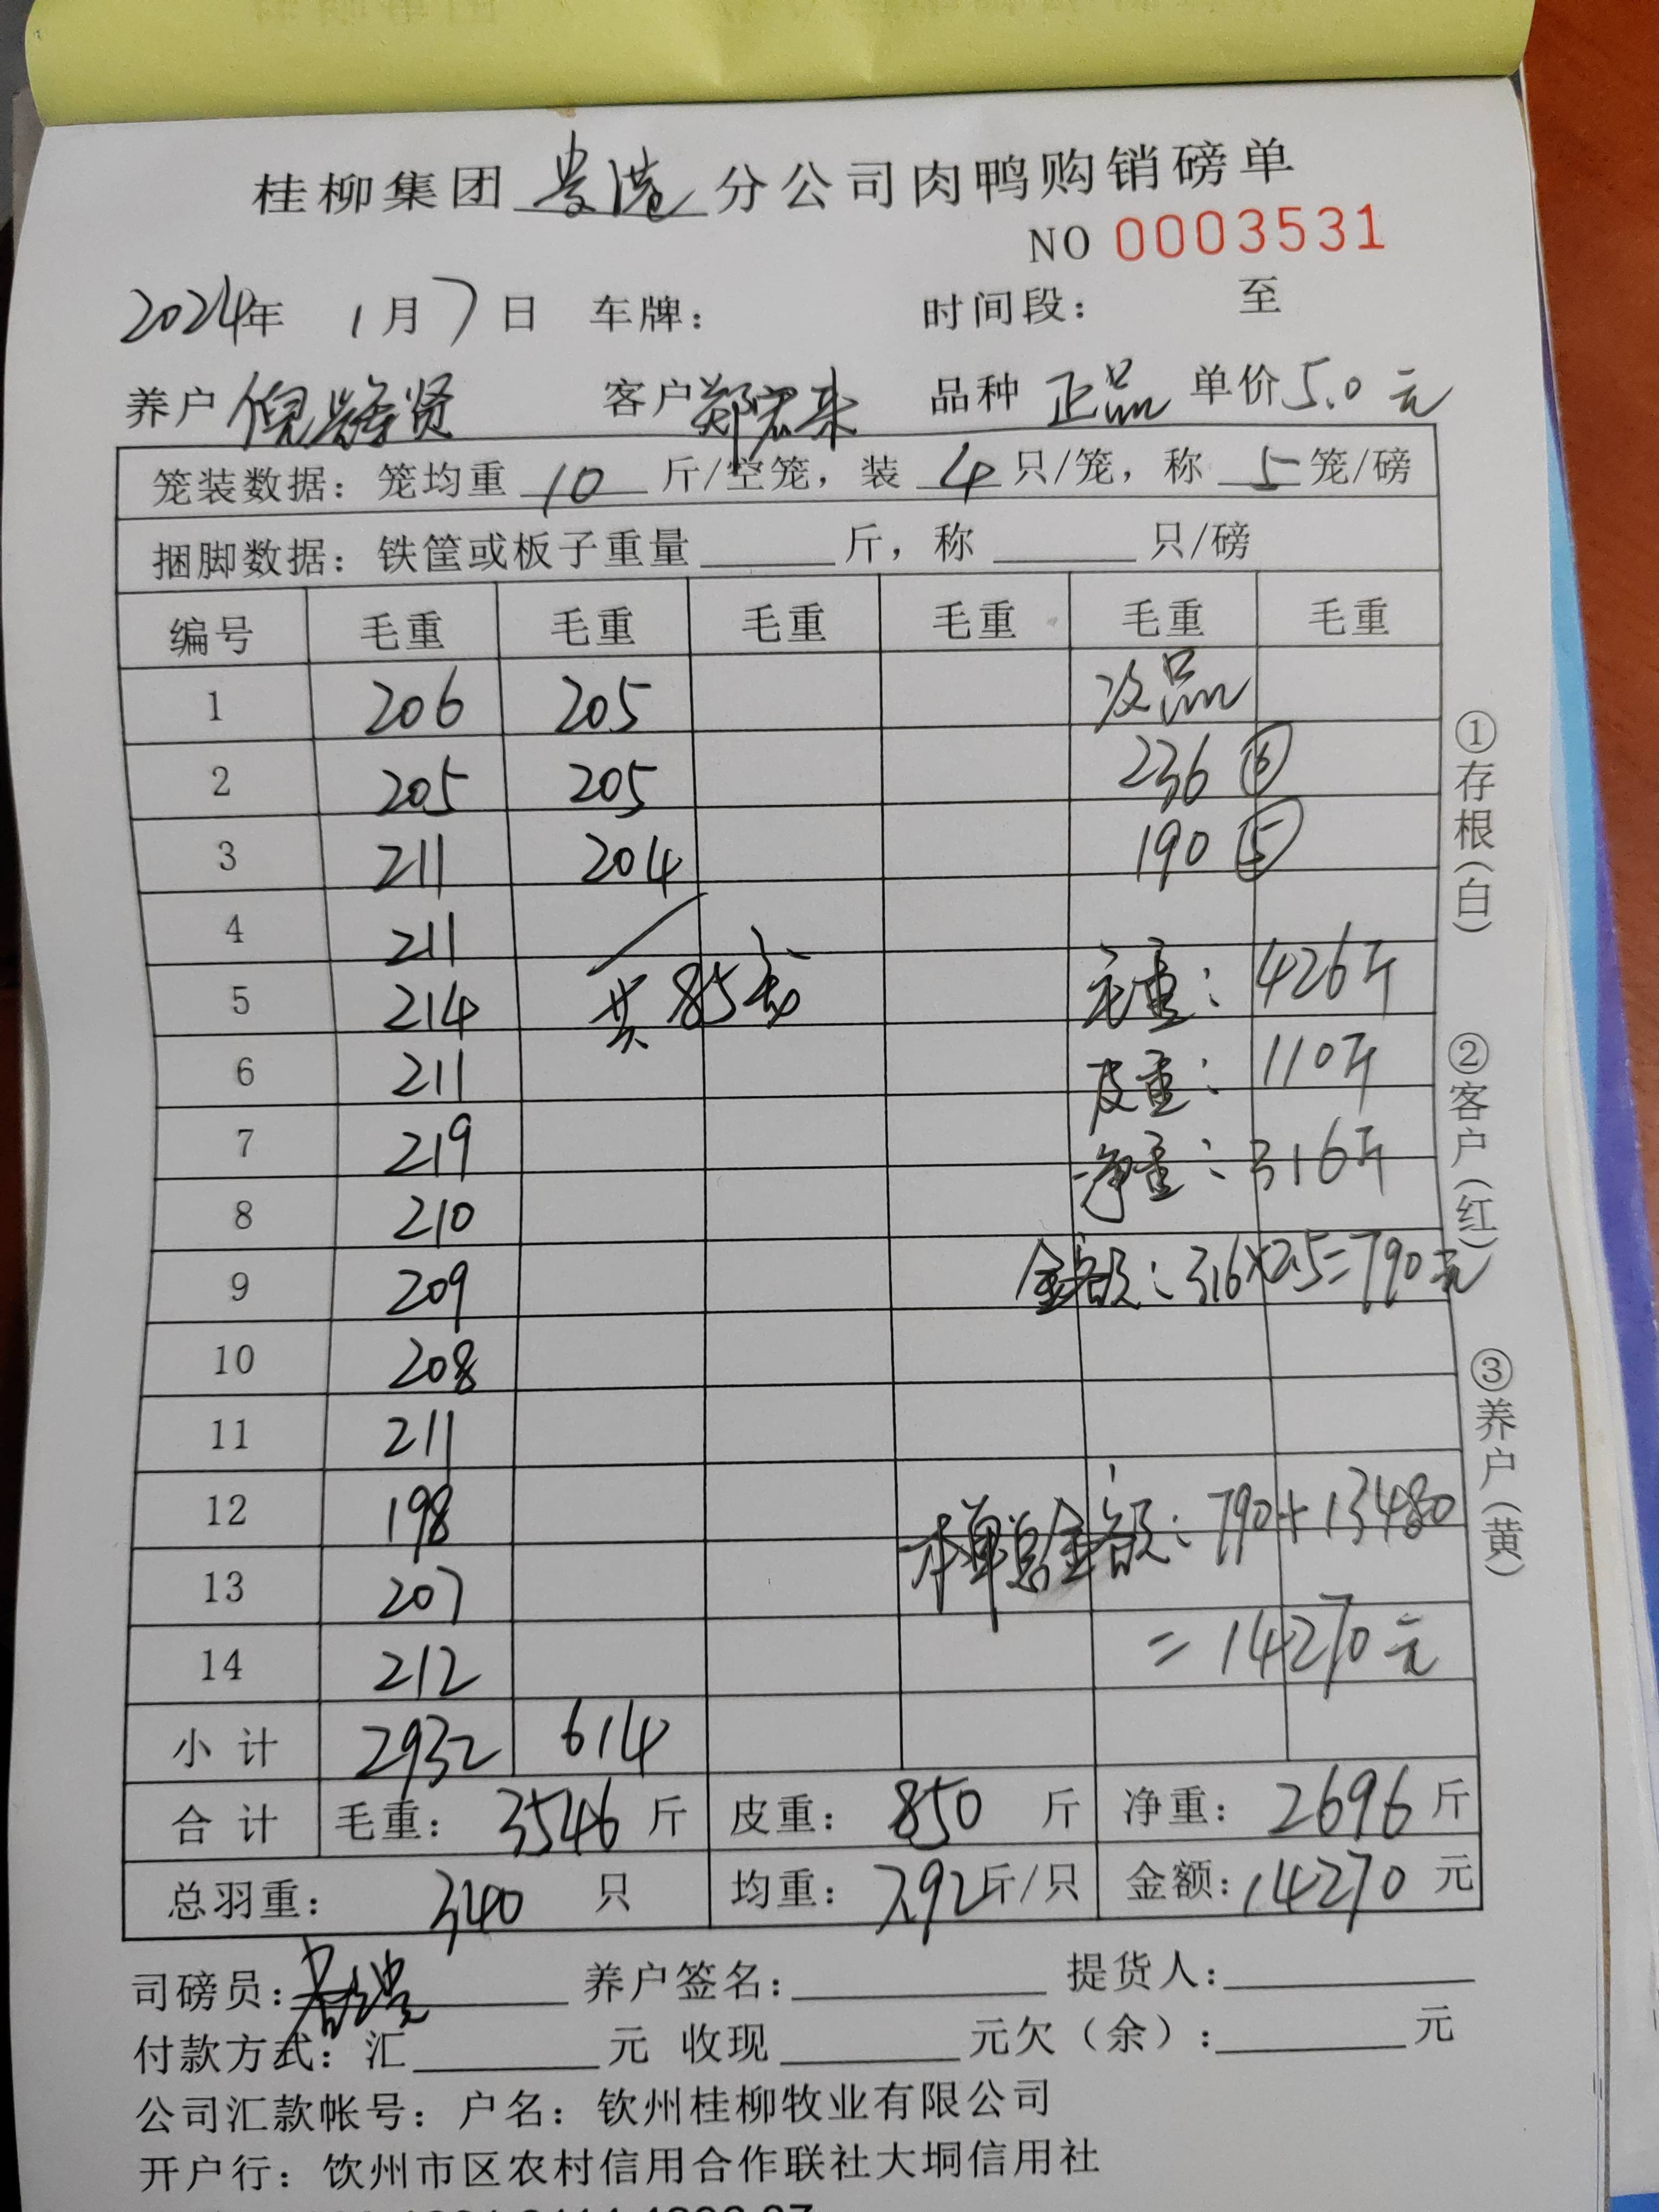 桂柳集团 贵港 分公司肉鸭购销磅单
NO 0003531
2024年 1月7日 车牌： 时间段： 至
养户 倪 贤 客户 郑宏来 品种 正品 单价 5.0 元
笼装数据：笼均重 10 斤/空笼，装 4 只/笼，称 5 笼/磅
捆脚数据：铁筐或板子重量 斤，称 只/磅
编号 毛重 毛重 毛重 毛重 毛重 毛重
1 206 205 次品
2 205 205 236 ⑥
3 211 204 190 ⑤
4 211
5 214 共85笼 毛重：426斤
6 211 皮重：110斤
7 219 净重：316斤
8 210
9 209 金额：316×2.5=790元
10 208
11 211
12 198 本单总金额：790+13480
13 207
14 212 =14270元
小计 2932 614
合计 毛重：3546 斤 皮重：850 斤 净重：2696 斤
总羽重：340 只 均重：7.92斤/只 金额：14270 元
①存根（白）
②客户（红）
③养户（黄）
司磅员： 养户签名： 提货人：
付款方式：汇 元 收现 元欠（余）： 元
公司汇款帐号：户名：钦州桂柳牧业有限公司
开户行：钦州市区农村信用合作联社大垌信用社